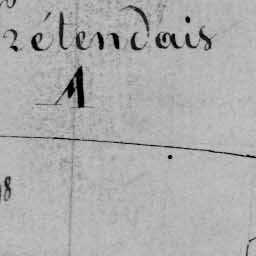 rétendais
A
98